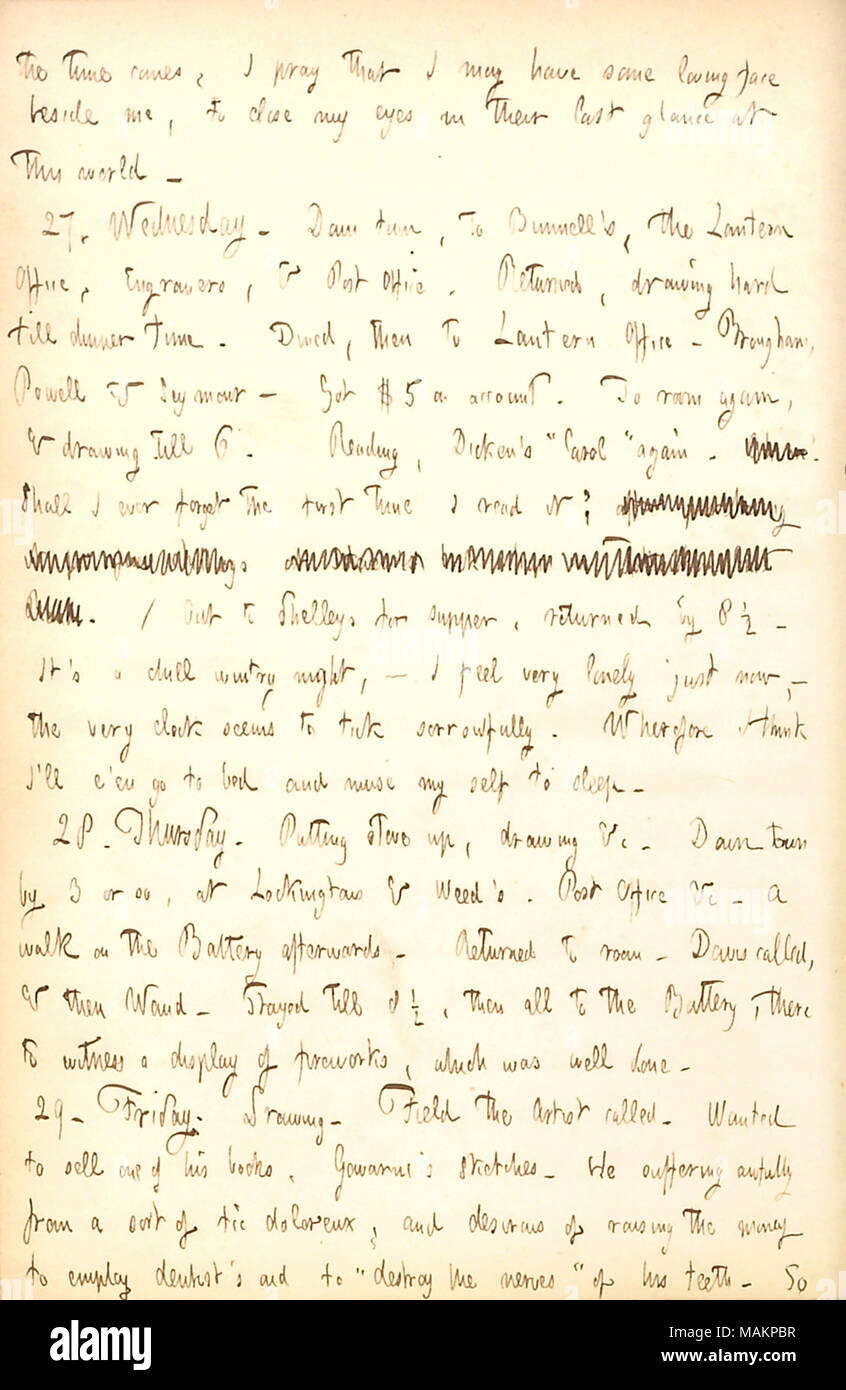 the time comes, I pray that I may have some loving face
beside me, to close my eyes in their last glance at
this world —
27. Wednesday. Down town, to Bunnell's, the Lantern
Office, Engravers, & Post Office. Returned, drawing hard
till dinner time. Dined, then to Lantern Office — Brougham,
Powell & Seymour — Got $5 on account. To room again,
& drawing till 6. Reading, Dicken's "Carol" again.
Shall I ever forget the first time I read it?
/ Out to Shelleys for supper, returned by 8 ½ —
It's a dull wintry night, — I feel very lonely just now, —
the very clock seems to tick sorrowfully. Wherefore I think
I'll e'en go to bed and muse my self to sleep —
28. Thursday. Putting stove up, drawing &c — Down town
by 3 or so, at Lockingtons & Weed's. Post Office &c — A
walk on the Battery afterwards — Returned to room — Davis called,
& then Waud — Stayed till 8 ½, then all to the Battery, there
to witness a display of fireworks, which was well done —
29 — Friday. Drawing — Field the Artist called — Wanted
to sell one of his books, Gavarni's Sketches — He suffering awfully
from a sort of tic doloreux, and desirous of raising the money
to employ dentist's aid to "destroy the nerves" of his teeth — So
alamy
alamy
Image ID: MAKPBR
www.alamy.com